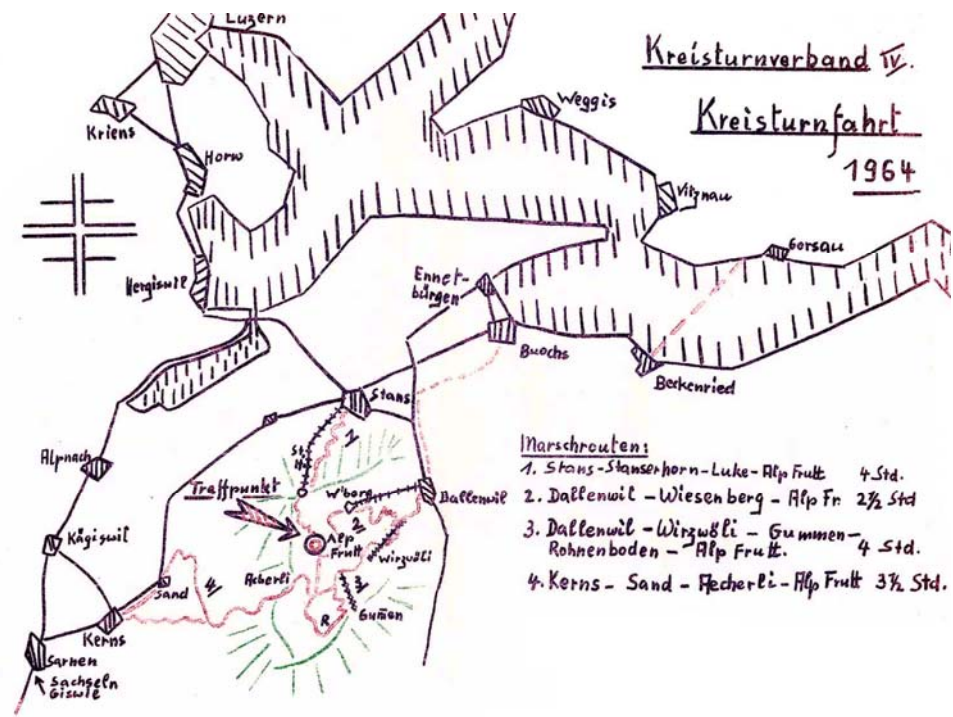 Kreisturnverband IV.
Kreisturnfahrt
1964
Luzern
Kriens
Horw
Hergiswil
Weggis
Vitznau
Gorsau
Ennet-
bürgen
Buochs
Beckenried
Stans
Alpnach
Kägiswil
Sarnen
Sachseln
Giswil
Kerns
Sand
4
Acherli
Treffpunkt
Alp
Frutt
1
2
3
W'berg
Dallenwil
Wirzwöli
Gum̄en
R
Marschrouten:
1. Stans-Stanserhorn-Luke-Alp Frutt 4 Std.
2. Dallenwil - Wiesenberg - Alp Fr. 2½ Std
3. Dallenwil - Wirzwöli - Gummen-
Rohnenboden - Alp Frutt. 4 Std.
4. Kerns - Sand - Aecherli - Alp Frutt 3½ Std.